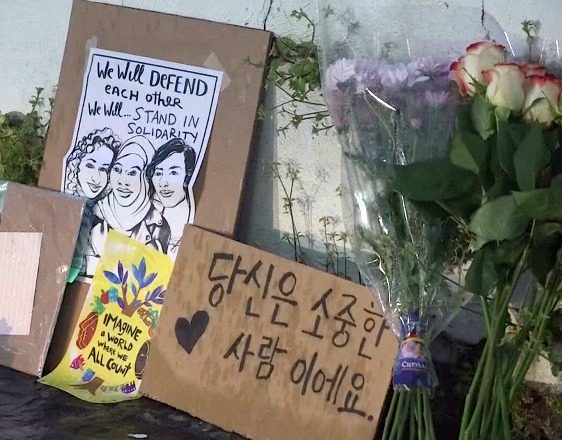 We Will DEFEND
EACH OTHER
We Will... STAND IN
SOLIDARITY
IMAGINE
A WORLD
WHERE WE
ALL COUNT
당신은 소중한
사람 이에요.